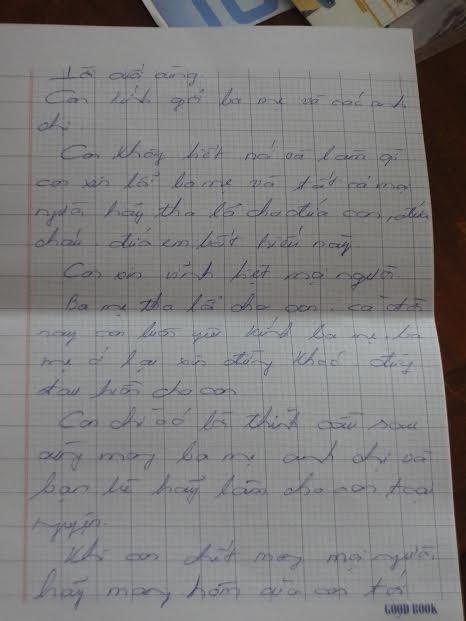 10
Lời cuối cùng
Con kính gởi ba mẹ và các anh
chị.
Con không biết nói và làm gì
con xin lỗi ba mẹ và tất cả mọi
người hãy tha lỗi cho đứa con, đứa
cháu đứa em bất hiếu này
Con xin vĩnh biệt mọi người
Ba mẹ tha lỗi cho con. cả đời
này con luôn yêu kính ba mẹ, ba
mẹ ở lại xin đừng khóc đừng
đau buồn cho con
Con chỉ có lời thỉnh cầu sau
cùng mong ba mẹ anh chị và
bạn bè hãy làm cho con toại
nguyện.
Khi con chết mong mọi người
hãy mang hòm của con tới
GOOD BOOK